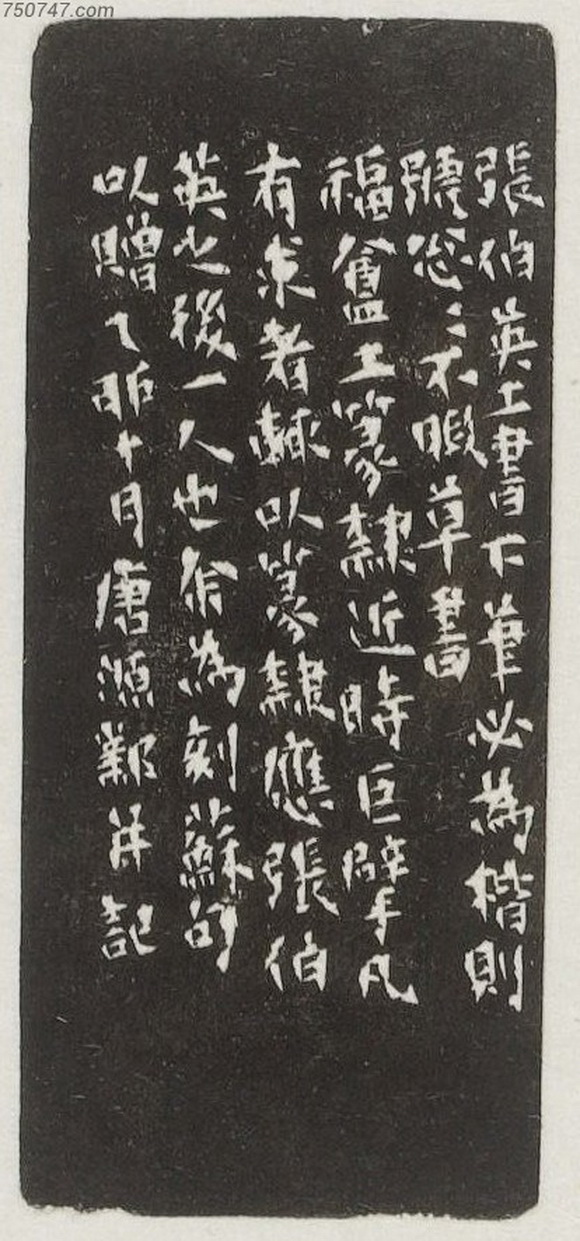 750747.com
張伯英工書下筆必為楷則
號怱〻不暇草書
福盦工篆隸近時巨擘凡
有求者輒以篆隸應張伯
英之後一人也余為刻蘇句
以贈乙十月唐源鄴并記